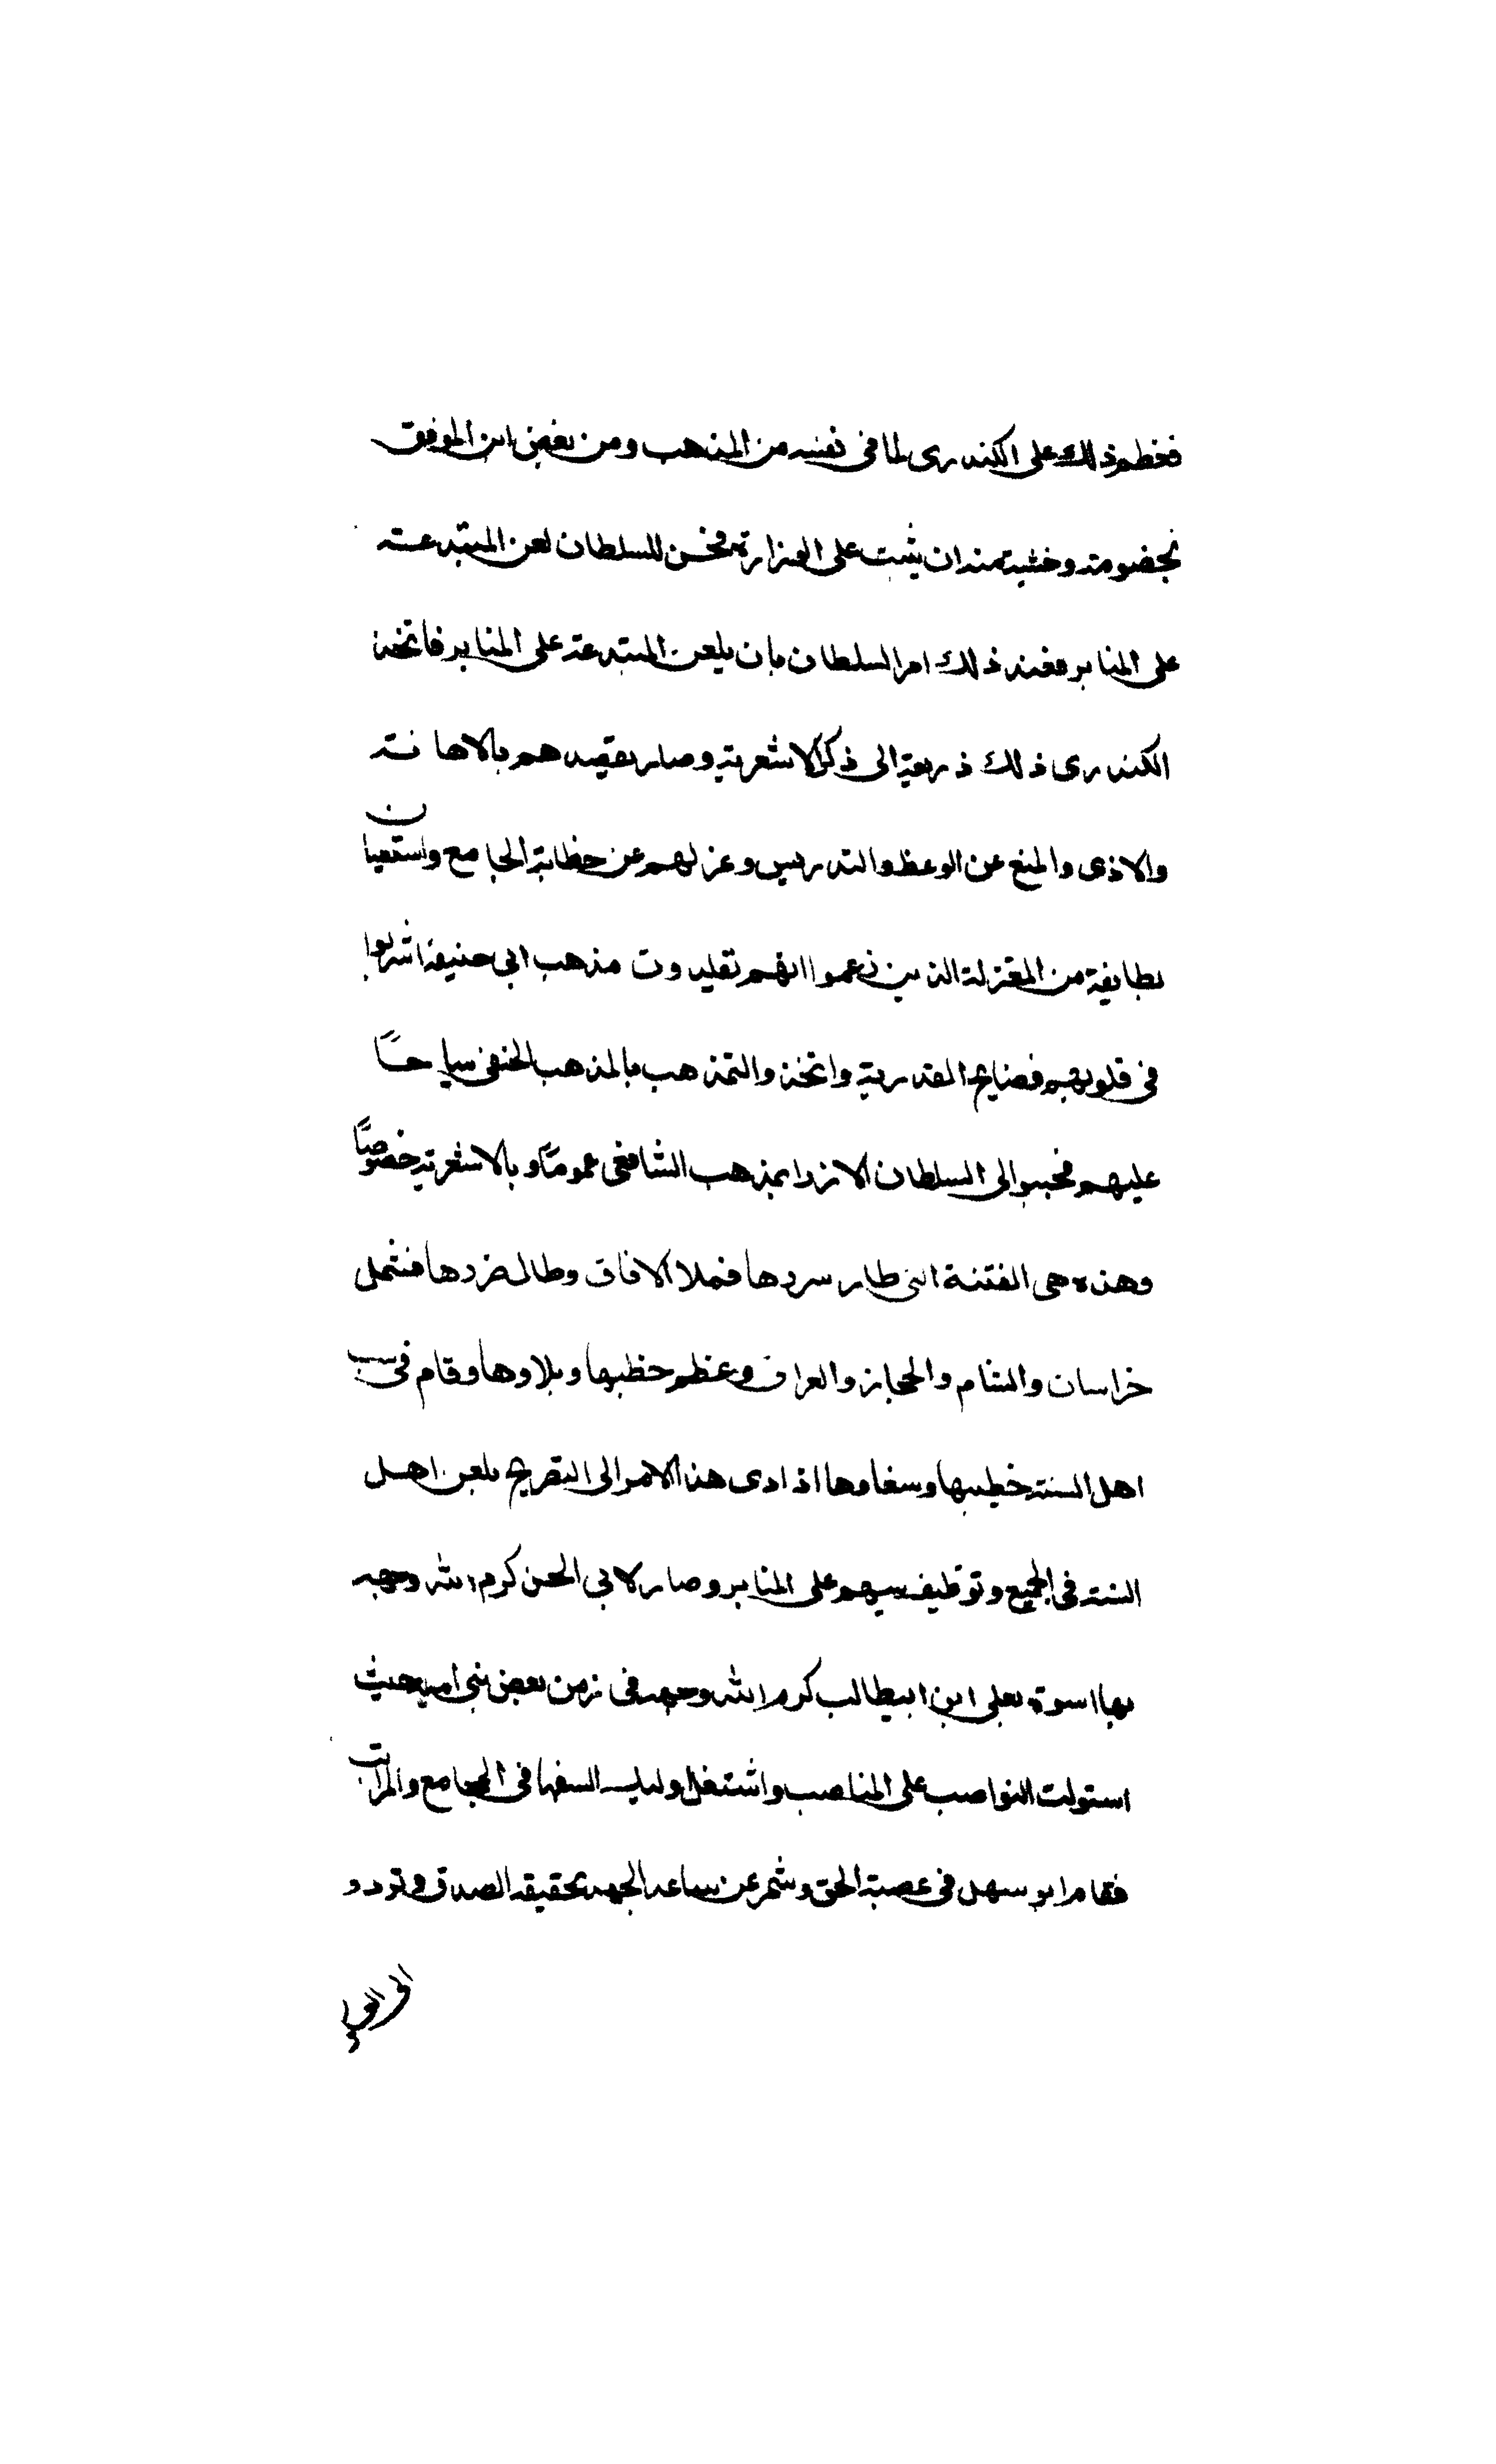 فخطم ذلك على الكندرى لما فى نفسه من المذهب ومن بغض ابن الموفق
بخصومته وخشية منه ان يثبت على الوزارة فحسن للسلطان لعن المبتدعته
على المنابر فعند ذلك امر السلطان بان يلعن المبتدعة على المنابر فاتخذ
الكندرى ذلك ذريعة الى ذكر الاشعرية وصار يقصدهم بالاهانته
والاذى والمنع عن الوعظ والتدريس وعزلهم عن خطابة الجامع واستعان
بطايفة من المعتزلة الذين زعموا انهم تقليدون مذهب ابى حنيفة اشربوا
فى قلوبهم فضايح القدرية واتخذوا التمذهب بالمذهب الحنفى سياجاً
عليهم فحببوا الى السلطان الازرا بمذهب الشافعى عموماً وبالاشعرية خصوصاً
وهذه هى الفتنة التى طار سردها فملا الافاق وطال ضردها فشمل
خراسان والشام والحجاز والعراق وعظم خطبها وبلاوها وقام فى سب
اهل السنة خطيبها وسفاوها اذ ادى هذا الامر الى التصريح بلعن اهل
السنة فى الجميع وتوظيف سبهم على المنابر وصار لابى الحسن كرم الله وجهه
بها اسوة بعلى ابن ابيطالب كرم الله وجهه فى زمن بعض بنى اميه حيث
استولت النواصب على المناصب واشتغل اوليك السفها فى المجامع والمراتب
فقام ابو سهل فى عصبة الحق وشمر عن ساعد الجهد بحقيقه الصدق وتردد